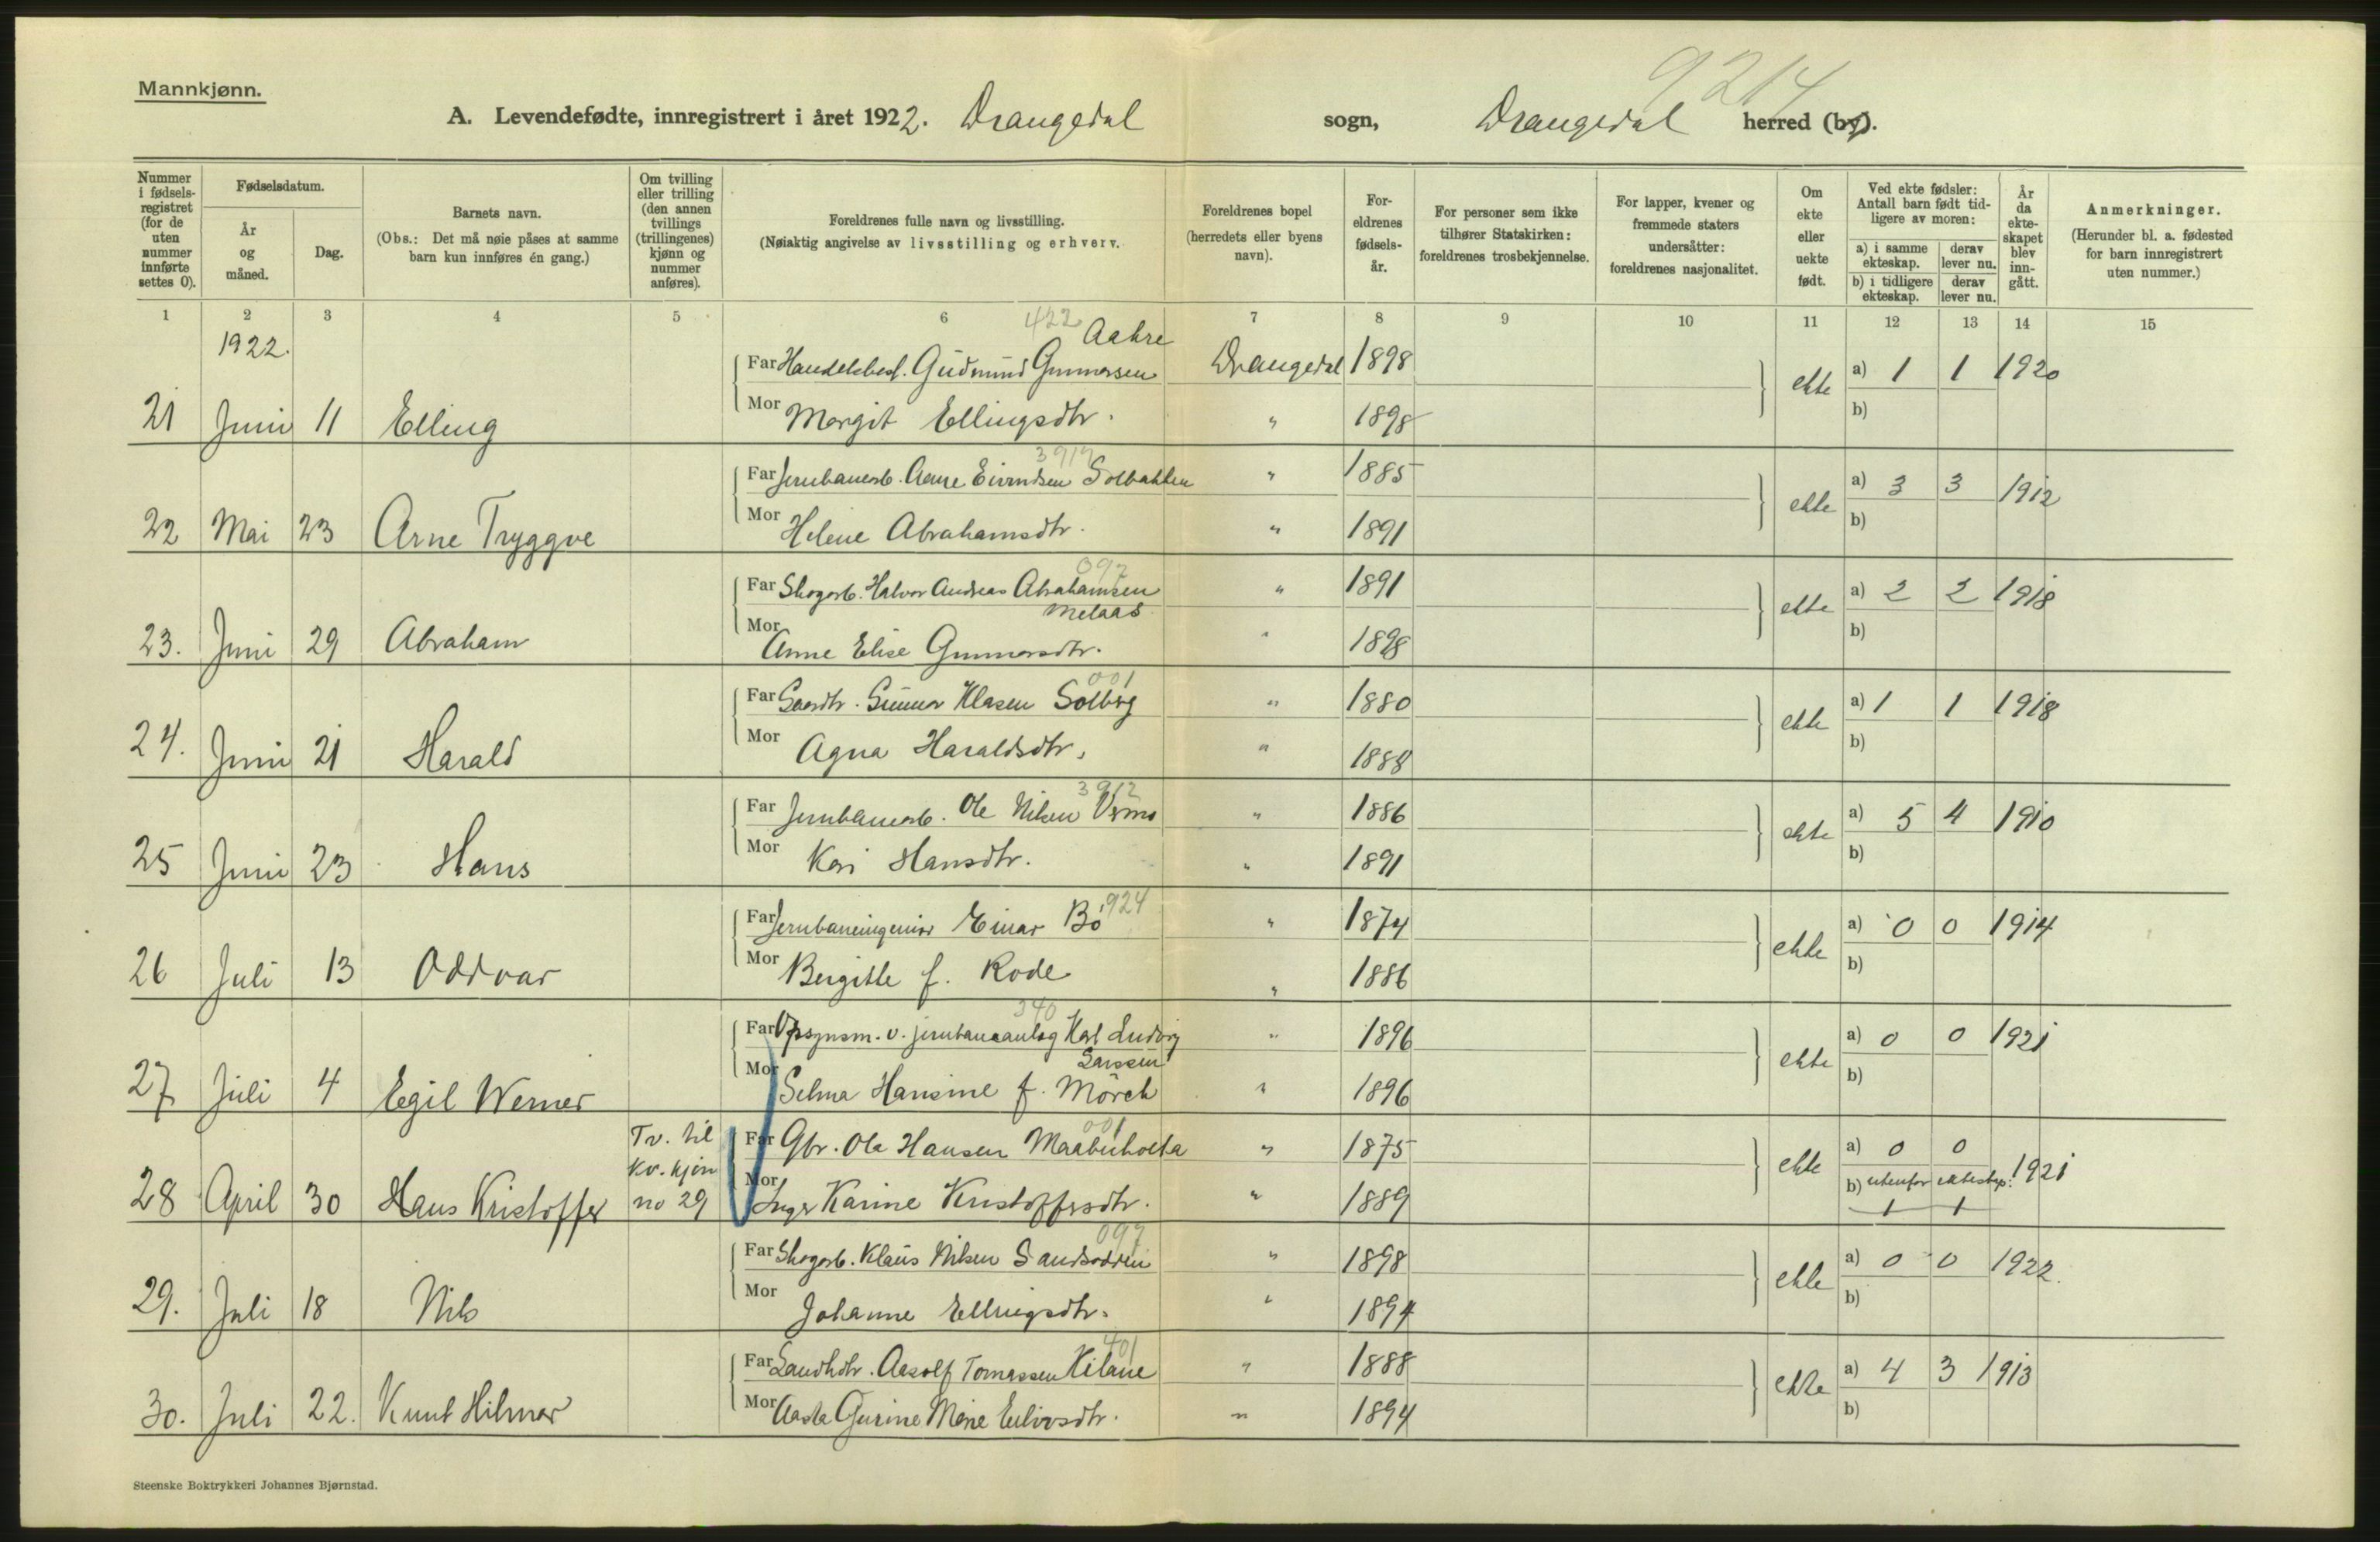 Mannkjønn.
9214
A. Levendefødte, innregistrert i året 1922. Drangedal sogn, Drangedal herred (by).
Nummer i fødselsregistret (for de uten nummer innførte settes 0).
Fødselsdatum.
År og måned.
Dag.
Barnets navn.
(Obs.: Det må nøie påses at samme barn kun innføres én gang.)
Om tvilling eller trilling (den annen tvillings (trillingenes) kjønn og nummer anføres).
Foreldrenes fulle navn og livsstilling.
(Nøiaktig angivelse av livsstilling og erhverv.
Foreldrenes bopel (herredets eller byens navn).
Foreldrenes fødselsår.
For personer som ikke tilhører Statskirken: foreldrenes trosbekjennelse.
For lapper, kvener og fremmede staters undersåtter: foreldrenes nasjonalitet.
Om ekte eller uekte født.
Ved ekte fødsler: Antall barn født tidligere av moren:
a) i samme ekteskap. derav lever nu.
b) i tidligere ekteskap. derav lever nu.
År da ekteskapet blev inngått.
Anmerkninger.
(Herunder bl. a. fødested for barn innregistrert uten nummer.)
1 2 3 4 5 6 7 8 9 10 11 12 13 14 15
1922. 422 Aakre
Far Handelsbest. Gudmund Gunnarsen Drangedal 1898 a) 1 1 1920
21 Juni 11 Elling Mor Margit Ellingsdtr. " 1898 ekte b)
3912
Far Jernbanearb. Aane Eivindsen Solbakken " 1885 a) 3 3 1912
22 Mai 23 Arne Tryggve Mor Helene Abrahamsdtr. " 1891 ekte b)
097
Far Skogarb. Halvor Andreas Abrahamsen " 1891 a) 2 2 1918
Melaas
23. Juni 29 Abraham Mor Anne Elise Gunnarsdtr. " 1898 ekte b)
001
Far Gaardbr. Gunnar Klasen Solberg " 1880 a) 1 1 1918
24. Juni 21 Harald Mor Agna Haraldsdtr. " 1888 ekte b)
3912
Far Jernbanearb. Ole Nilsen " 1886 a) 5 4 1910
25 Juni 23 Hans Mor Kari Hansdtr. " 1891 ekte b)
924
Far Jernbaneingeniør Einar Bö " 1874 a) 0 0 1914
26 Juli 13 Oddvar Mor Bergitte f. Rode " 1886 ekte b)
340
Far Opsynsm. v. jernbaneanlæg Karl Ludvig " 1896 a) 0 0 1921
Larssen
27 Juli 4 Egil Werner Mor Selma Hansine f. Mörch " 1896 ekte b)
001
Tv. til Far Gbr. Ole Hansen " 1875 a) 0 0
Kv. kjön
28 April 30 Hans Kristoffer no 29 Mor Inger Karine Kristoffersdtr. " 1889 ekte b) utenfor ekteskap: 1921
1 1
097
Far Skogarb. Klaus Nilsen Sandsodden " 1898 a) 0 0 1922.
29. Juli 18 Nils Mor Johanne Ellingsdtr. " 1894 ekte b)
401
Far Landhdr. Aasolf Tomassen Kilane " 1888 a) 4 3 1913
30. Juli 22. Knut Hilmar Mor Aasta Gurine Marie " 1894 ekte b)
Steenske Boktrykkeri Johannes Bjørnstad.